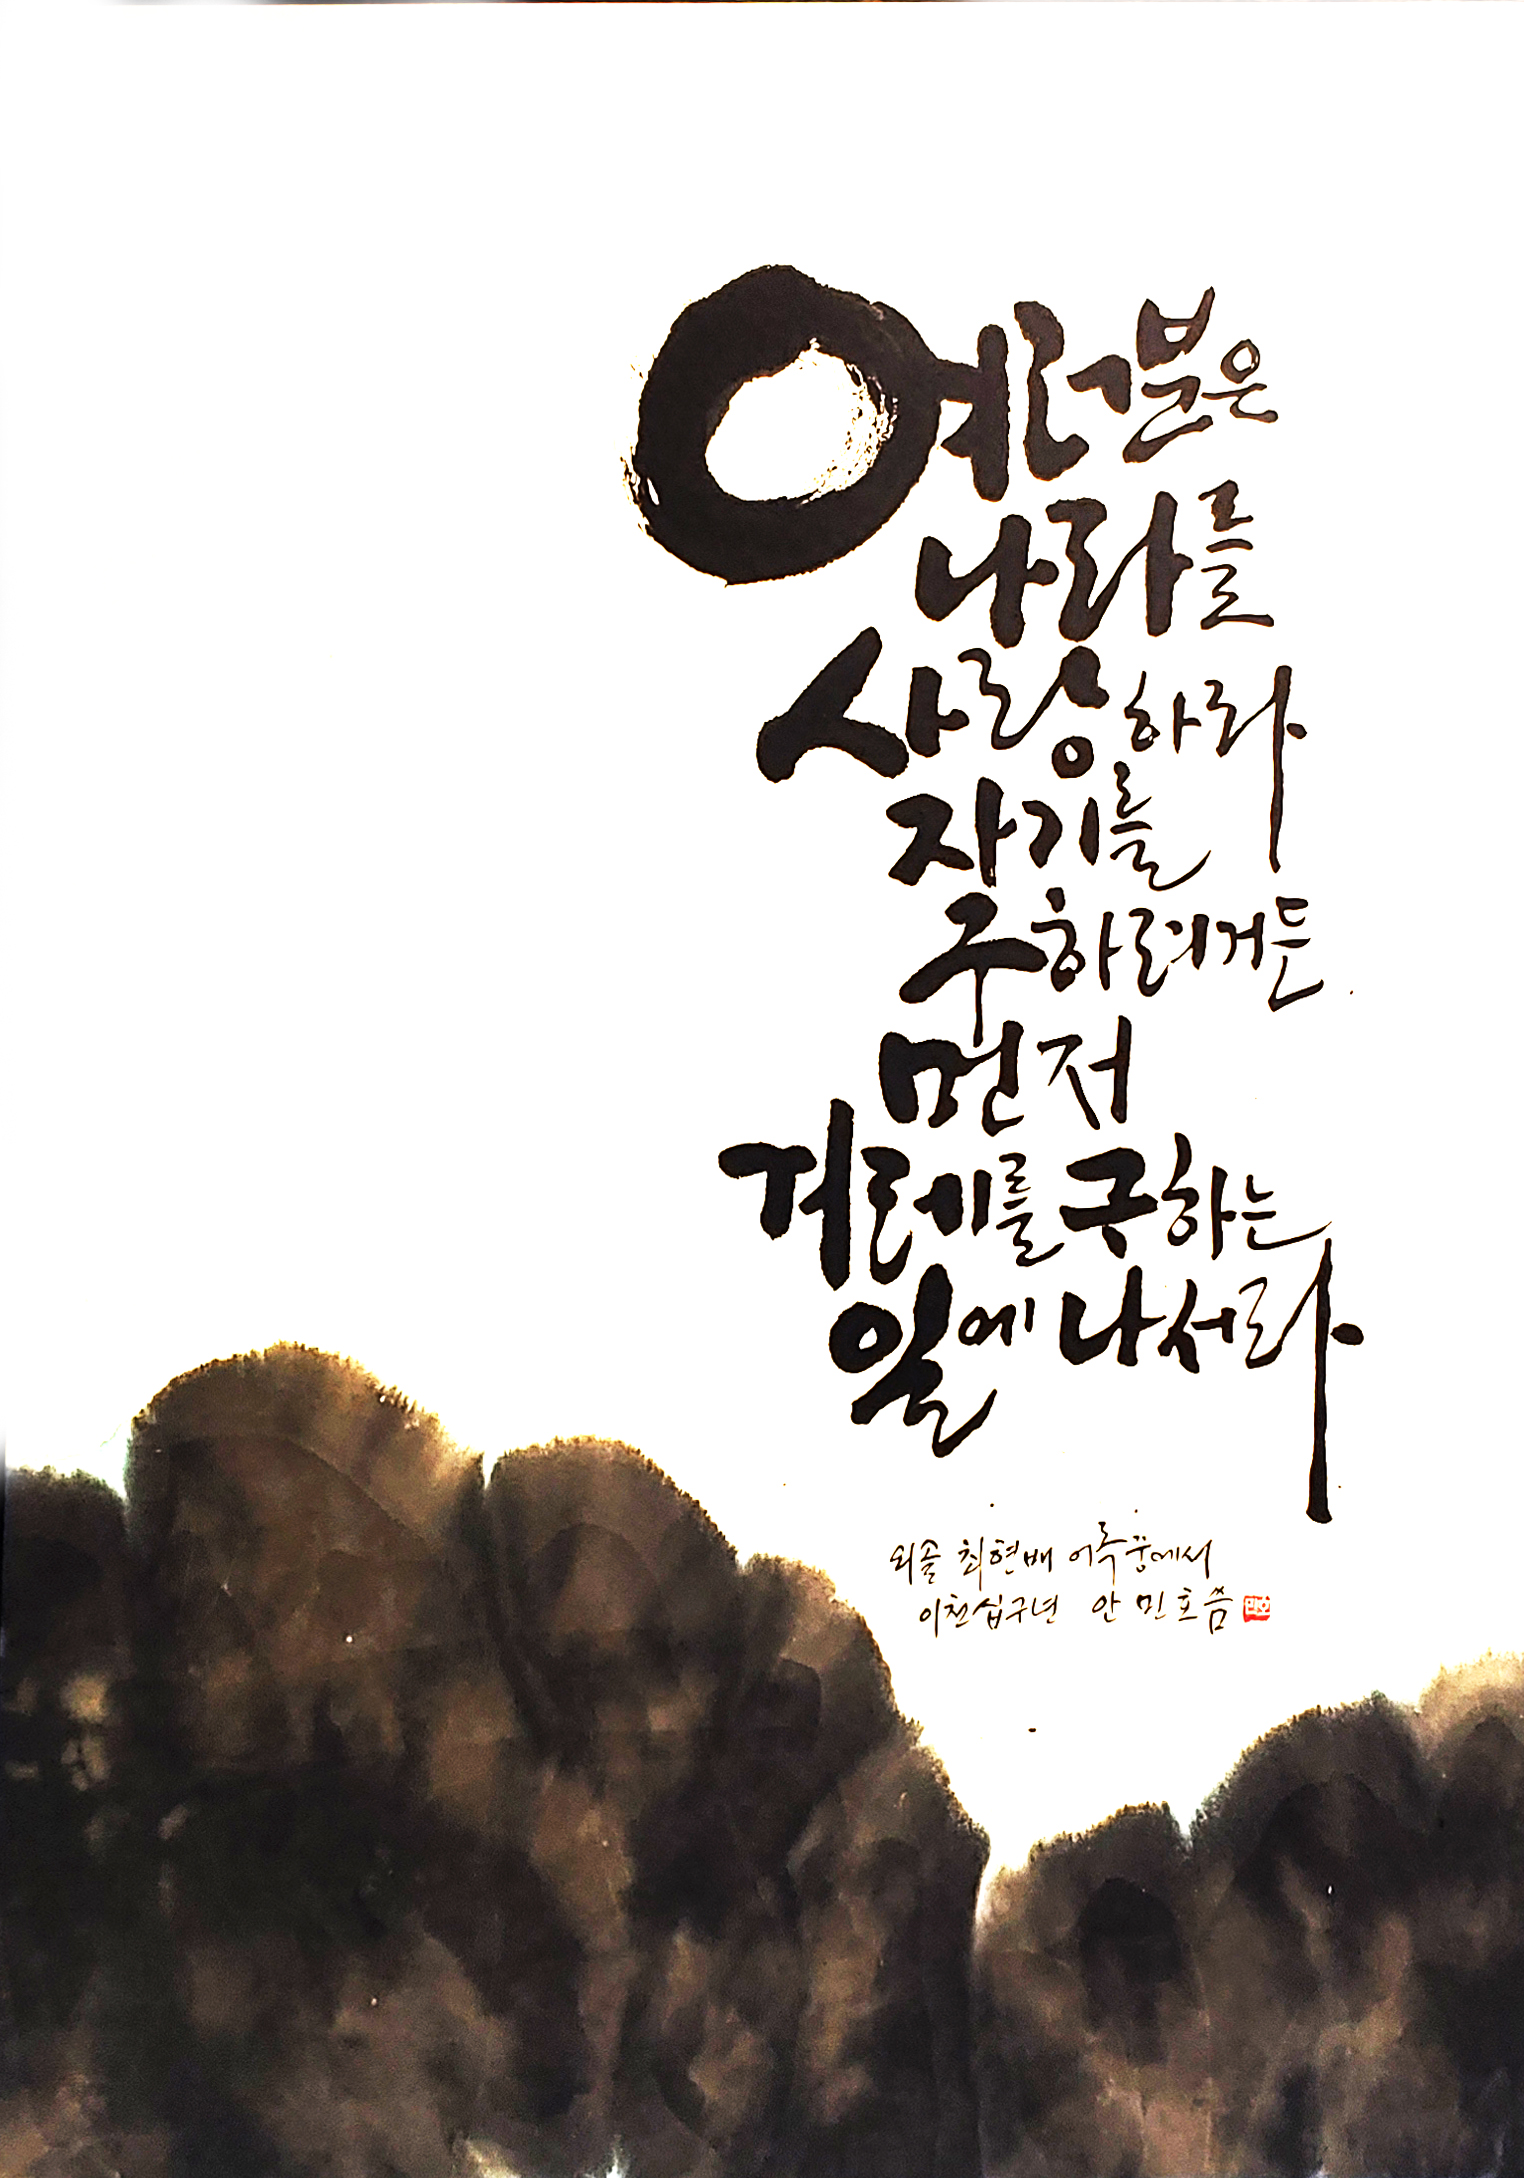 여러분은
나라를
사랑하라
자기를
구하려거든
먼저
겨레를 구하는
일에 나서라
외솔 최현배 어록중에서
이천십구년 안민호 씀
민호